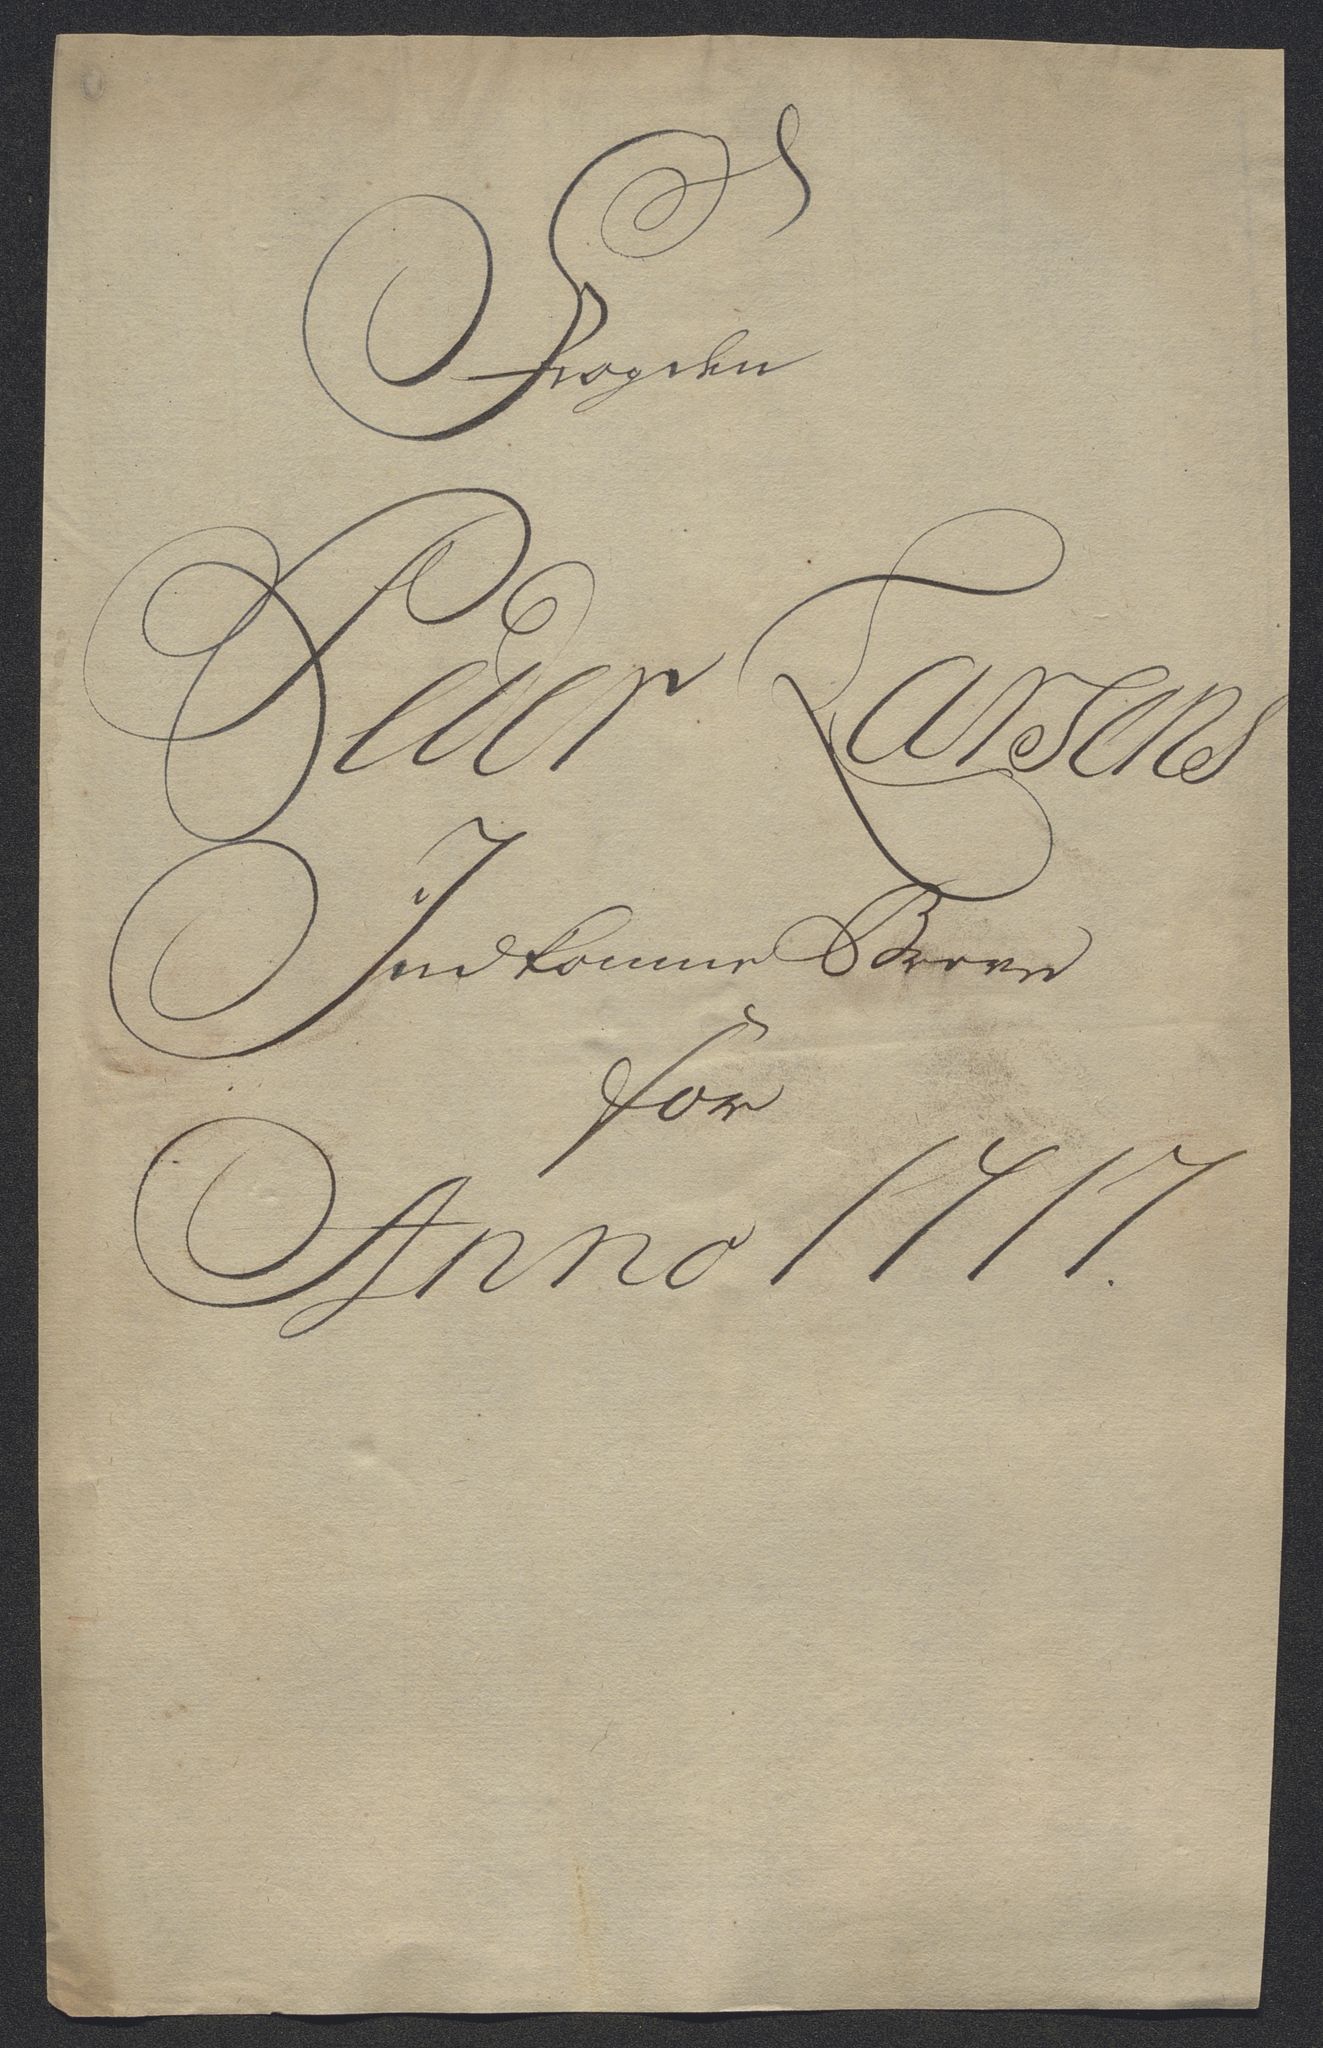 Fogden
Peder Larsens
Indkomne Breve
for
Anno 1717.